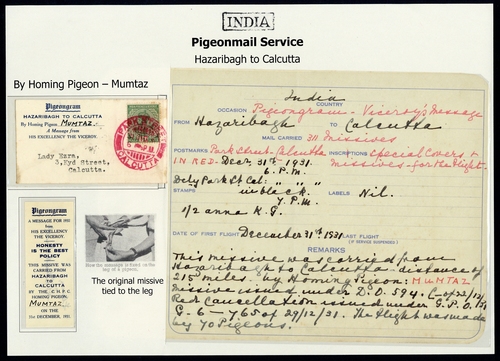 INDIA
Pigeonmail Service
Hazaribagh to Calcutta
By Homing Pigeon – Mumtaz
Pigeongram
HAZARIBAGH TO CALCUTTA
By Homing Pigeon, MUMTAZ.
A Message from
HIS EXCELLENCY THE VICEROY.
Lady Ezra,
3, Kyd Street,
Calcutta.
CALCUTTA
Pigeongram
A MESSAGE FOR 1932
from
HIS EXCELLENCY
THE VICEROY.
HONESTY
IS THE BEST
POLICY
THIS MISSIVE WAS
CARRIED FROM
HAZARIBAGH
TO
CALCUTTA
BY THE C.H.P.C.
HOMING PIGEON,
MUMTAZ.
ON THE
31st DECEMBER, 1931.
How the message is fixed on the
leg of a pigeon.
The original missive
tied to the leg
India
COUNTRY
OCCASION Pigeongram - Viceroy's Message
FROM Hazaribagh TO Calcutta
MAIL CARRIED 311 Missives
POSTMARKS Park Street - Calcutta
IN RED - Dec. 31st 1931.
6. P.M.
INSCRIPTIONS Special Covers &
Missives - for the flight.
Dely Park St Cal: " "
in black.
7. P.M.
STAMPS
1/2 anna K.G.
LABELS Nil.
DATE OF FIRST FLIGHT December 31st 1931 LAST FLIGHT
(IF SERVICE SUSPENDED)
REMARKS
This missive was carried from
Hazaribagh to Calcutta - distance of
215 miles. by Homing Pigeon: MUMTAZ
Missive issued under D.O. 594.
Red Cancellation issued under G.P.O.
G-6-765 of 29/12/31. The flight was made
by 40 Pigeons.